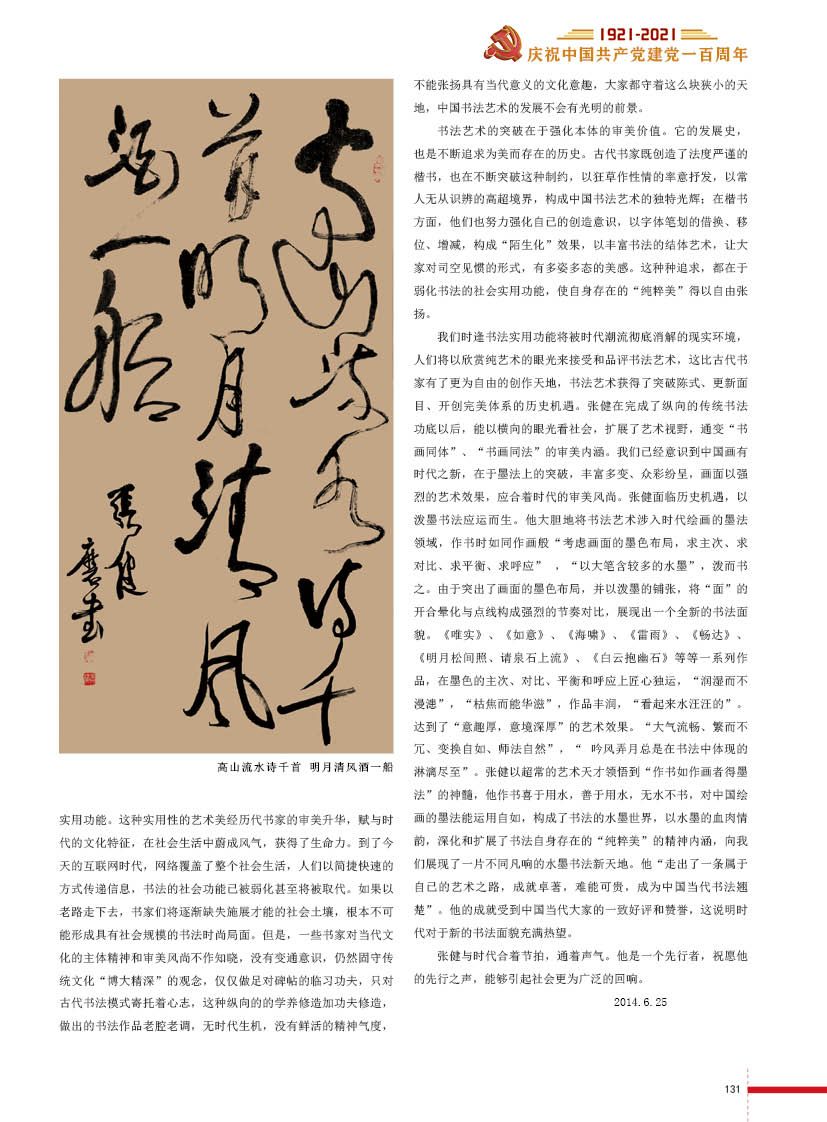 1921-2021
庆祝中国共产党建党一百周年
高山流水诗千
首明月清风
酒一船
张健
麿书
高山流水诗千首 明月清风酒一船
实用功能。这种实用性的艺术美经历代书家的审美升华，赋与时
代的文化特征，在社会生活中蔚成风气，获得了生命力。到了今
天的互联网时代，网络覆盖了整个社会生活，人们以简捷快速的
方式传递信息，书法的社会功能已被弱化甚至将被取代。如果以
老路走下去，书家们将逐渐缺失施展才能的社会土壤，根本不可
能形成具有社会规模的书法时尚局面。但是，一些书家对当代文
化的主体精神和审美风尚不作知晓，没有变通意识，仍然固守传
统文化“博大精深”的观念，仅仅做足对碑帖的临习功夫，只对
古代书法模式寄托着心志，这种纵向的的学养修造加功夫修造，
做出的书法作品老腔老调，无时代生机，没有鲜活的精神气度，
不能张扬具有当代意义的文化意趣，大家都守着这么块狭小的天
地，中国书法艺术的发展不会有光明的前景。
书法艺术的突破在于强化本体的审美价值。它的发展史，
也是不断追求为美而存在的历史。古代书家既创造了法度严谨的
楷书，也在不断突破这种制约，以狂草作性情的率意抒发，以常
人无从识辨的高超境界，构成中国书法艺术的独特光辉；在楷书
方面，他们也努力强化自已的创造意识，以字体笔划的借换、移
位、增减，构成“陌生化”效果，以丰富书法的结体艺术，让大
家对司空见惯的形式，有多姿多态的美感。这种种追求，都在于
弱化书法的社会实用功能，使自身存在的“纯粹美”得以自由张
扬。
我们时逢书法实用功能将被时代潮流彻底消解的现实环境，
人们将以欣赏纯艺术的眼光来接受和品评书法艺术，这比古代书
家有了更为自由的创作天地，书法艺术获得了突破陈式、更新面
目、开创完美体系的历史机遇。张健在完成了纵向的传统书法
功底以后，能以横向的眼光看社会，扩展了艺术视野，通变“书
画同体”、“书画同法”的审美内涵。我们已经意识到中国画有
时代之新，在于墨法上的突破，丰富多变、众彩纷呈，画面以强
烈的艺术效果，应合着时代的审美风尚。张健面临历史机遇，以
泼墨书法应运而生。他大胆地将书法艺术涉入时代绘画的墨法
领域，作书时如同作画般“考虑画面的墨色布局，求主次、求
对比、求平衡、求呼应” ，“以大笔含较多的水墨”，泼而书
之。由于突出了画面的墨色布局，并以泼墨的铺张，将“面”的
开合晕化与点线构成强烈的节奏对比，展现出一个全新的书法面
貌。《唯实》、《如意》、《海啸》、《雷雨》、《畅达》、
《明月松间照、请泉石上流》、《白云抱幽石》等等一系列作
品，在墨色的主次、对比、平衡和呼应上匠心独运，“润湿而不
漫漶”，“枯焦而能华滋”，作品丰润，“看起来水汪汪的”。
达到了“意趣厚，意境深厚”的艺术效果。“大气流畅、繁而不
冗、变换自如、师法自然”，“ 吟风弄月总是在书法中体现的
淋漓尽至”。张健以超常的艺术天才领悟到“作书如作画者得墨
法”的神髓，他作书喜于用水，善于用水，无水不书，对中国绘
画的墨法能运用自如，构成了书法的水墨世界，以水墨的血肉情
韵，深化和扩展了书法自身存在的“纯粹美”的精神内涵，向我
们展现了一片不同凡响的水墨书法新天地。他“走出了一条属于
自已的艺术之路，成就卓著，难能可贵，成为中国当代书法翘
楚”。他的成就受到中国当代大家的一致好评和赞誉，这说明时
代对于新的书法面貌充满热望。
张健与时代合着节拍，通着声气。他是一个先行者，祝愿他
的先行之声，能够引起社会更为广泛的回响。
2014.6.25
131